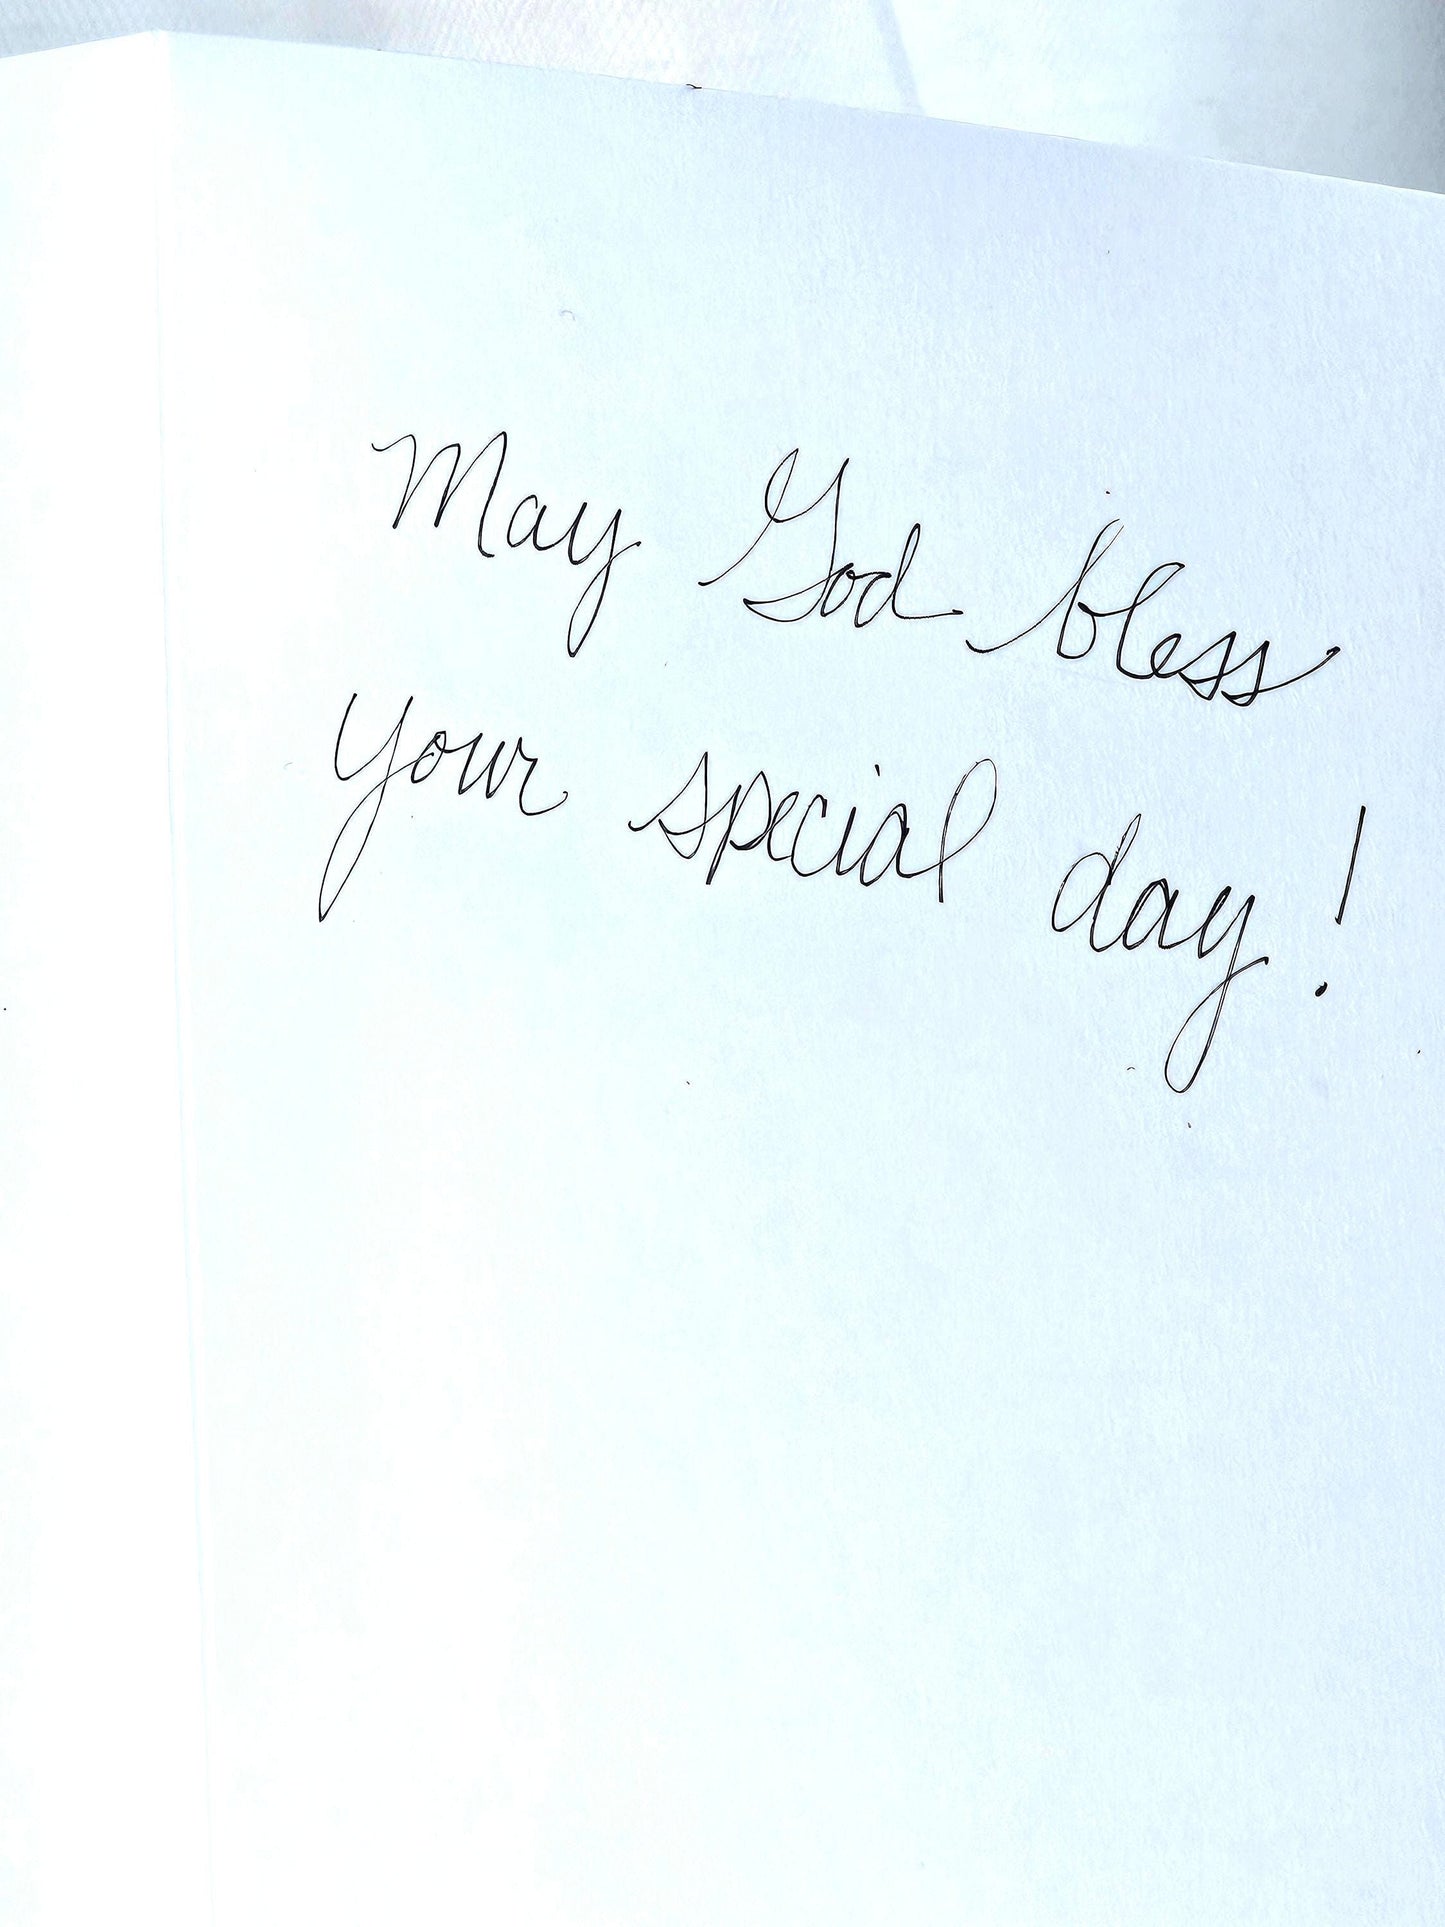 May God bless
your special day!